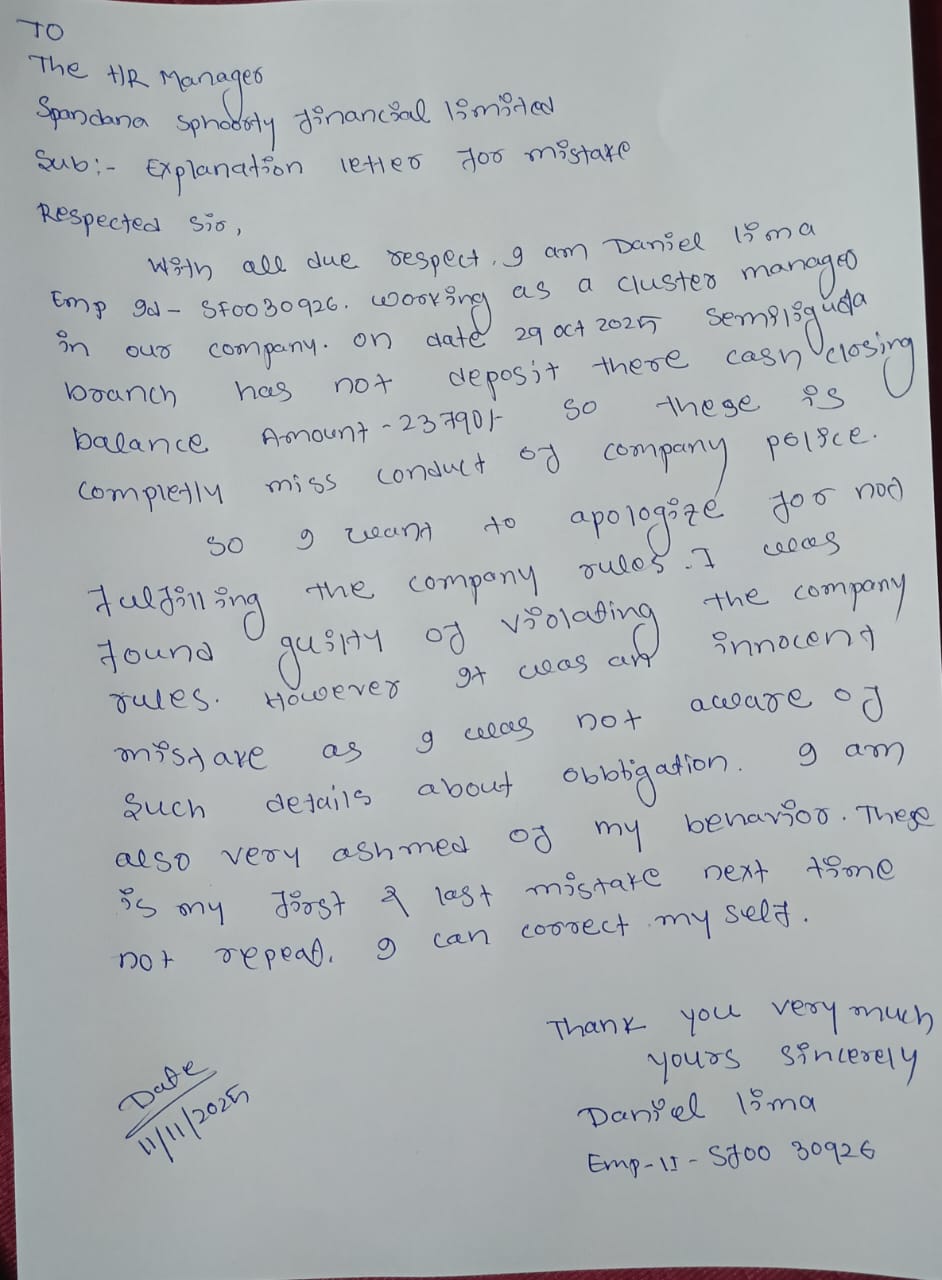 TO
The HR Manager
Spandana Sphoorty financial limited
Sub:- Explanation letter for mistake
Respected Sir,
With all due respect. I am Daniel lima
Emp Id - SF0030926. working as a cluster manager
in our company. on date 29 oct 2025 Semiliguda
branch has not deposit there cash closing
balance Amount - 23790/- so these is
completly miss conduct of company police.
So I want to apologize for not
fulfilling the company rules. I was
found guilty of violating the company
rules. However It was an innocent
mistake as I was not aware of
such details about obbbigation. I am
also very ashmed of my behavior. These
is my first & last mistake next time
not repeat. I can correct my self.
Thank you very much
yours sincerely
Daniel lima
Emp-Id - SF00 30926
Date
11/11/2025